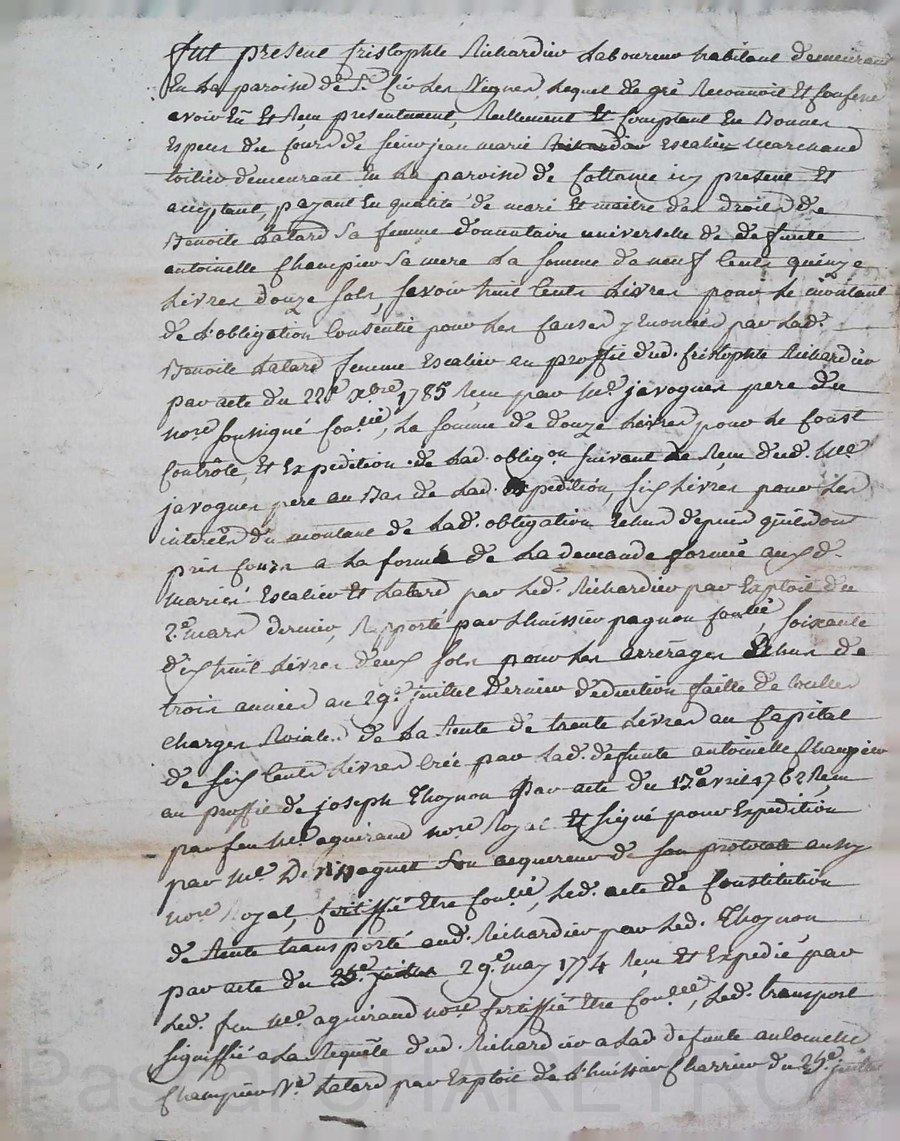 fut present fristophle Richardier Laboureur habitant demeurant
En La paroisse de St. Cir Les Vignes, Lequel de gré Reconnoit Et Confesse
avoir Eû Et Reçu presentement, Réellement Et Comptant En Bonnes
Especes du Cours de sieur jean marie Richardier Escalier Marchand
toilier demeurant En La paroisse de Cottance icy present Et
acceptant, payant En qualité de mari Et maitre des droits de
Benoite Latard Sa femme donnataire universelle de defunte
antoinette Champier Sa mere La somme de neuf Cents quinze
Livres douze sols, sçavoir huit Cents Livres pour Le montant
de L'obligation Consentie pour Les Causes y Enoncées par Lad.
Benoite Latard femme Escalier au proffit dud. fristophle Richardier
par acte du 22e. xbre. 1785 Reçu par Me. javogues pere du
nore. soussigné Conlé., La somme de douze Livres pour Le Coust
Controle, Et Expedition de Lad. obligon. suivant Le Reçu dud. Me.
javogues pere au Bas de Lad. Expedition, six Livres pour Les
interets du montant de Lad. obligation Echus depuis qu'ils ont
pris Cours a La forme de La demande formée auxd.
mariés Escalier Et Latard par Led. Richardier par Exploit du
2e. mars dernier, Rapporté par L'huissier pagnon Conlé., soixante
dix huit Livres deux sols pour Les arrerages Echus de
trois années au 29e. juillet dernier deduction faitte de touttes
Charges Roiales de La Rente de trente Livres au Capital
de six Cents Livres Créé par Lad. defunte antoinette Champier
au proffit de joseph Thoynon par acte du 13e. avril 1762 Reçu
par feu Me. aguiraud nore. Royal Et signé pour Expedition
par Me. son acquereur de son protocole aussy
nore. Royal, Certiffié Etre Conlé., Led. acte de Constitution
de Rente transporté aud. Richardier par Led. Thoynon
par acte du 25e. juillet 29e. may 1774 Reçu Et Expedié par
Led. feu Me. aguiraud nore. Certiffié Etre Conlé., Led. transport
signiffié a La Requête dud. Richardier a Lad. defunte antoinette
Champier Ve. Latard par Exploit de L'huissier Charrier du 25e. juillet
Pascal CHAREYRON